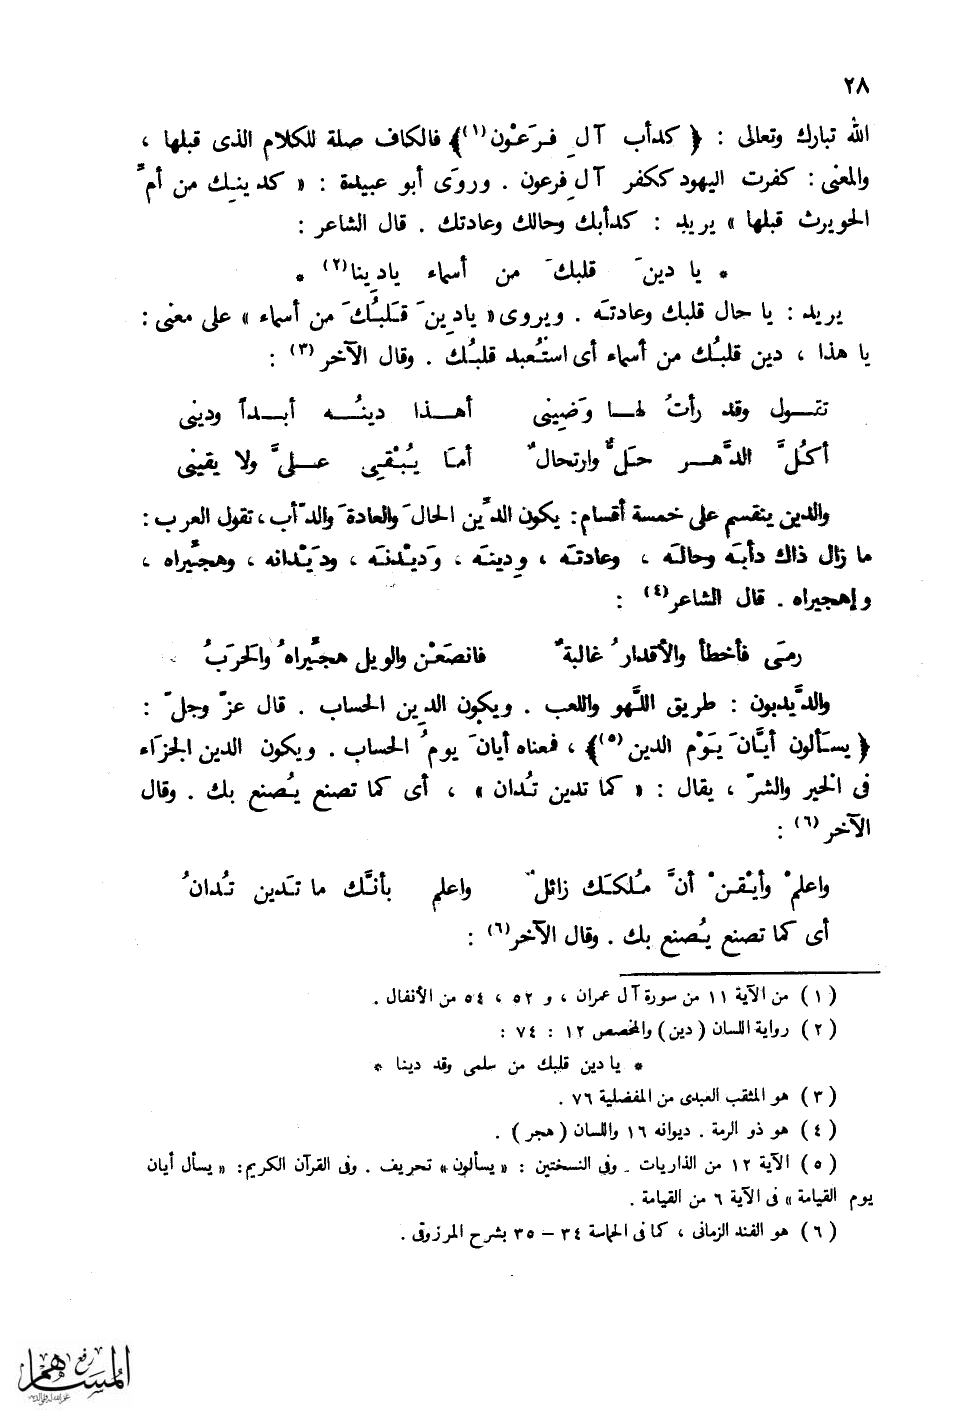 ٢٨
الله تبارك وتعالى : ﴿ كدأب آلِ فرَعْون(١)﴾ فالكاف صلة للكلام الذى قبلها ،
والمعنى : كفرت اليهود ككفر آلِ فرعون . وروَى أبو عبيدة : « كدينِك من أمِّ
الحويرث قبلها » يريد : كدأبك وحالك وعادتك . قال الشاعر :
* يا دينَ قلبكَ من أسماء يادِينا(٢) *
يريد : يا حال قلبك وعادتَه . ويروى « يادِينَ قَلبُكَ من أسماء » على معنى :
يا هذا ، دين قلبُك من أسماء أى استُعبد قلبُك . وقال الآخر (٣) :
تقول وقد رأتُ لها وَضِينى أهذا دينُه أبداً ودينى
أكُلَّ الدَّهر حَلٌّ وارتحالٌ أمَا يُبْقِي علىَّ ولا يقينى
والدين ينقسم على خمسة أقسام : يكون الدِّين الحالَ والعادةَ والدّأب ، تقول العرب :
ما زال ذاك دأبَه وحالَه ، وعادتَه ، ودِينَه ، وَديْدنَه ، وديَْدانه ، وهجِّيراه ،
وإهجيراه . قال الشاعر(٤) :
رمَى فأخطأ والأقدارُ غالبةٌ فانصَعْن والويل هجِّيراهُ والحَرَبُ
والدَّيدبون : طريق اللَّهو واللعب . ويكون الدِين الحساب . قال عزّ وجلّ :
﴿ يسَألون أيَّانَ يَوْم الدين(٥)﴾ ، فمعناه أيانَ يومُ الحساب . ويكون الدين الجزاء
فى الخير والشرّ ، يقال : « كما تدين تُدان » ، أى كما تصنع يُصنع بك . وقال
الآخر (٦) :
واعلمْ وأيْقنْ أنَّ مُلكَك زائلٌ واعلم بأنَّك ما تَدين تُدانُ
أى كما تصنع يُصنع بك . وقال الآخر(٦) :
(١) من الآية ١١ من سورة آل عمران ، و ٥٢ ، ٥٤ من الأنفال .
(٢) رواية اللسان ( دين ) والمخصص ١٢ : ٧٤ :
* يا دين قلبك من سلمى وقد دينا *
(٣) هو المثقب العبدى من المفضلية ٧٦ .
(٤) هو ذو الرمة . ديوانه ١٦ واللسان ( هجر ) .
(٥) الآية ١٢ من الذاريات . وفى النسختين : « يسألون » تحريف . وفى القرآن الكريم : « يسأل أيان
يوم القيامة » فى الآية ٦ من القيامة .
(٦) هو الفند الزمانى ، كما فى الحماسة ٣٤ – ٣٥ بشرح المرزوقى .
رفع